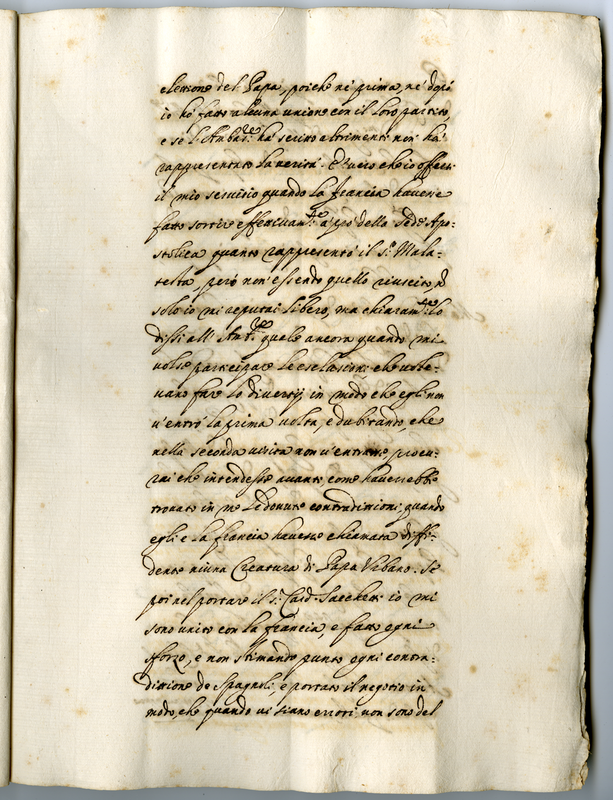 elettione del Papa, poiche nè prima, nè dopò
io hò fatto alcuna unione con il loro partito,
e se l'Ambad.re hà scritto altrimenti non hà
rappresentato la verità. È vero che io offersi
il mio servitio quando la Francia havesse
fatto sortire effettivam.te a prò della Sede Apo-
stolica quanto rappresentò il S.r Mala-
testa, però non essendo quello riuscito, nò
solo io mi reputai libero, ma chiaram.te lo
dissi all' Amb.re quale ancora quando mi
volse participare le esclusioni che vole-
vano fare lo divertij, in modo che egli non
v'entrò la prima volta, e dubitando, che
nella seconda visita non v'entrasse, procu-
rai che intendesse avanti, come haverebbe
trovato in me le dovute contraditioni, quando
egli e la Francia havesse chiamata diffi-
dente niuna Creatura di Papa Urbano. Se
poi nel portare il S.r Card. Sacchetti io mi
sono unito con la Francia, e fatto ogni
sforzo, e non stimando punto ogni contra-
dittione de Spagnoli, e portato il negotio in
modo, che quando vi siano errori non sono del